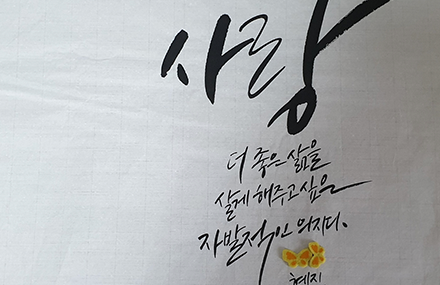 사랑
더 좋은 삶을
살게 해주고 싶은
자발적인 의지다.
혜진